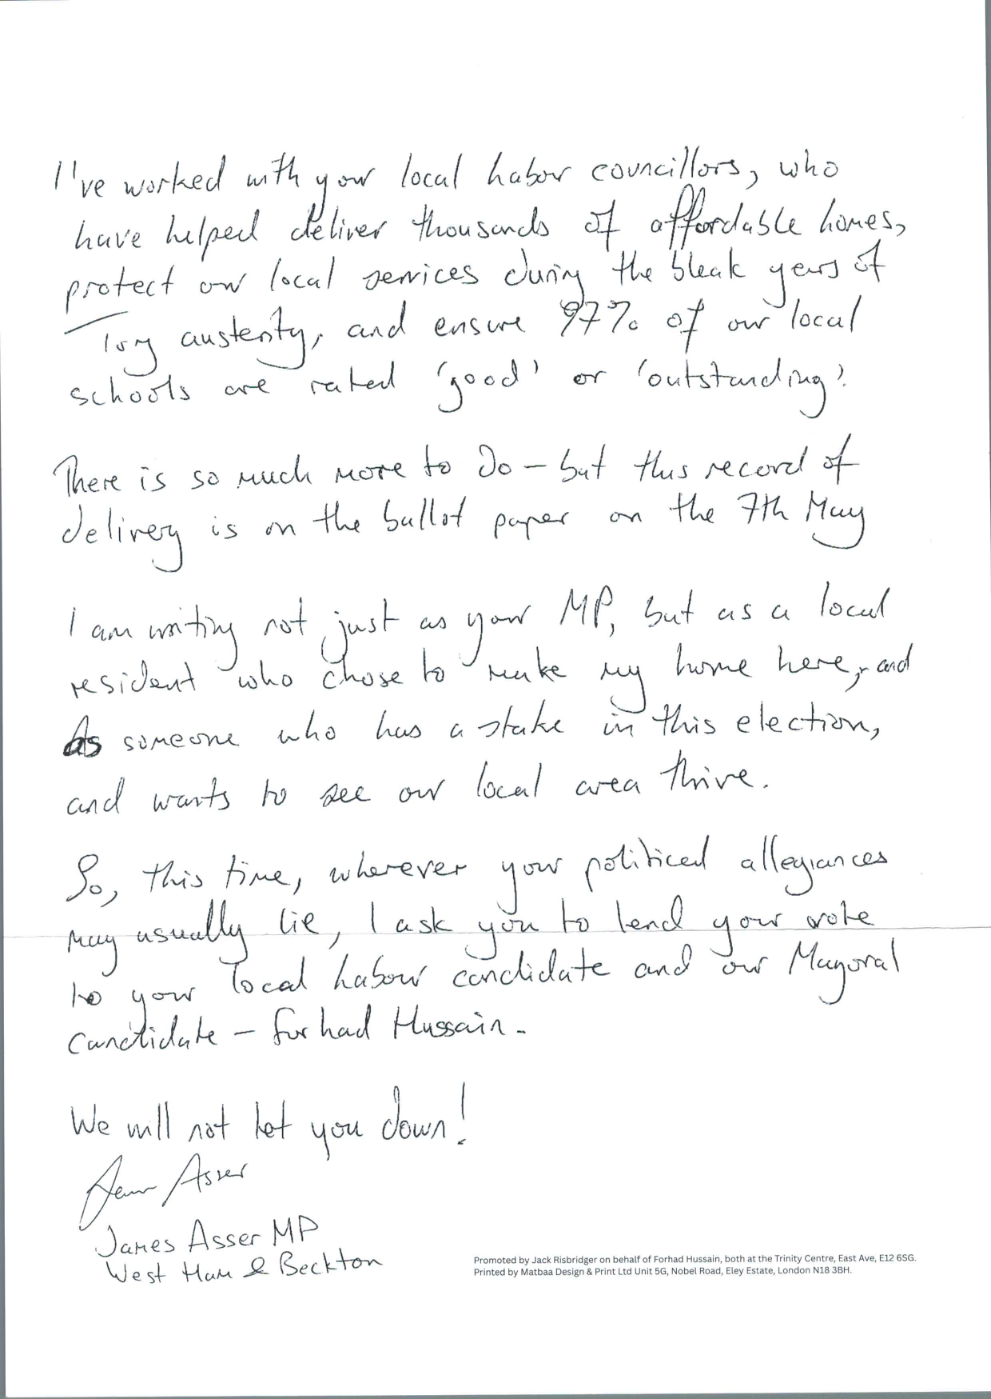 I've worked with your local Labour councillors, who
have helped deliver thousands of affordable homes,
protect our local services during the bleak years of
Tory austerity, and ensure 97% of our local
schools are rated 'good' or 'outstanding'.
There is so much more to do – but this record of
delivery is on the ballot paper on the 7th May
I am writing not just as your MP, but as a local
resident who chose to make my home here, and
As someone who has a stake in this election,
and wants to see our local area thrive.
So, this time, wherever your political allegiances
may usually lie, I ask you to lend your vote
to your local Labour candidate and our Mayoral
candidate – Forhad Hussain.
We will not let you down!
James Asser
James Asser MP
West Ham & Beckton
Promoted by Jack Risbridger on behalf of Forhad Hussain, both at the Trinity Centre, East Ave, E12 6SG.
Printed by Matbaa Design & Print Ltd Unit 5G, Nobel Road, Eley Estate, London N18 3BH.